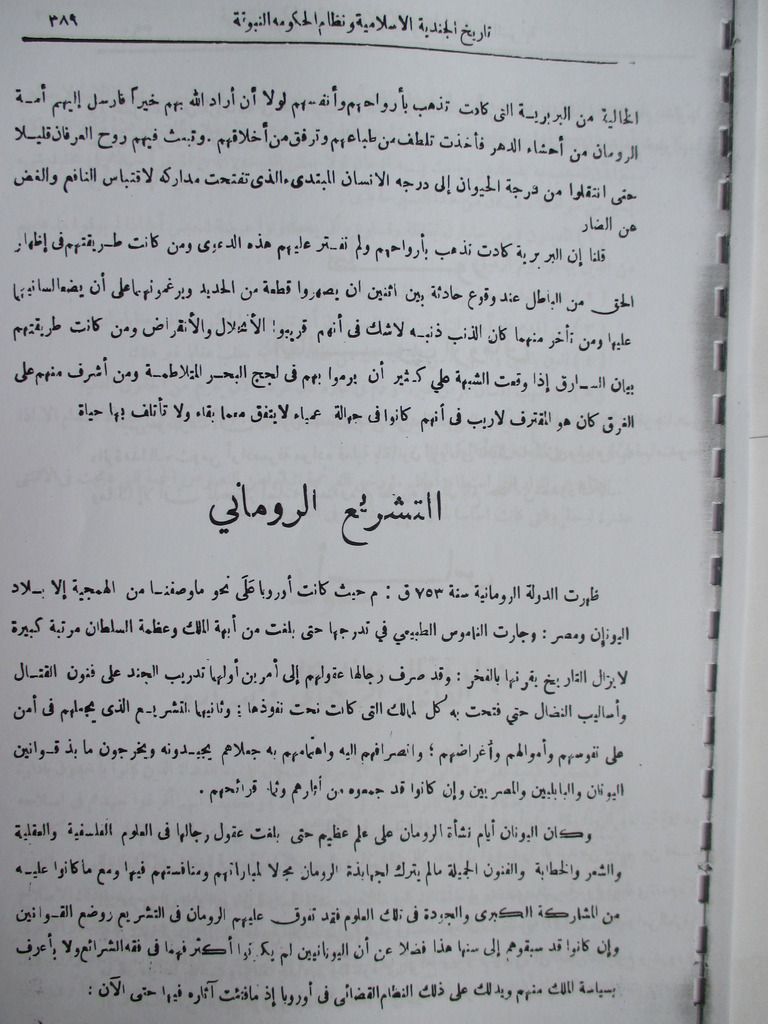 تاريخ الجندية الاسلامية ونظام الحكومه النبوية ٣٨٩
الخالية من البربرية التى كادت تذهب بأرواحهم وأنفسهم لولا أن أراد الله بهم خيراً فارسل إليهم أمـة
الرومان من أحشاء الدهر فأخذت تلطف من طباعهم وترفق من أخلاقهم . وتبعث فيهم روح العرفان قليـلا
حتى انتقلوا من درجة الحيوان إلى درجه الانسان المبتدىء الذى تفتحت مداركه لاقتباس النافع والغض
عن الضار
قلنا إن البربرية كادت تذهب بأرواحهم ولم نفـتر عليهم هذه الدعوى ومن كانت طـريقتهم فى إظهار
الحق من الباطل عند وقوع حادثة بين اثنين ان يصهروا قطعة من الحديد ويرغمونهما على أن يضعا لسانيهما
عليها ومن تأخر منهما كان الذنب ذنبـه لاشك فى أنهم قريبوا الأنحلال والأنقراض ومن كانت طريقتهم
بيان السـارق إذا وقعت الشبهة علي كـثير أن يرموا بهم فى لجج البحـر المتلاطمـة ومن أشرف منهم على
الغرق كان هو المقترف لاريب فى أنهم كانوا فى جهالة عمياء لايتفق معها بقاء ولا تأتلف بها حياة
التشريع الروماني
ظهرت الدولة الرومانية سنة ٧٥٣ ق : م حيث كانت أوروبا عَلَى نحو ماوصفنـا من الهمجية إلا بـلاد
اليونان ومصر : وجارت الناموس الطبيعي في تدرجها حتى بلغت من أبهة الملك وعظمة السلطان مرتبة كبيرة
لايزال التاريخ يقرنها بالفخر : وقد صرف رجالها عقولهم إلى أمرين أولهما تدريب الجند على فنون القتـال
وأساليب النضال حتي فتحت به كل الممالك التى كانت تحت نفوذها : وثانيهما التشريـع الذى يجعلهم فى أمن
على نفوسهم وأموالهم وأغراضهم ؛ وانصرافهم اليه واهتمامهم به جعلاهم يجيـدونه ويخرجون ما بذ قـوانين
اليونان والبابليين والمصريين وإن كانوا قد جمعوه من آثارهم وثمار قرائحهم .
وكان اليونان أيام نشأة الرومان على علم عظيم حتى بلغت عقول رجالها فى العلوم الفلسفية والعقلية
والشعر والخطابة والفنون الجميلة مالم يترك لجهابذة الرومان مجالا لمباراتهم ومنافستهم فيها ومع ماكانوا عليـه
من المشاركة الكبرى والجودة فى تلك العلوم فقد تفوق عليهم الرومان فى التشريع ووضع القـوانين
وإن كانوا قد سبقوهم إلى سنها هذا فضلا عن أن اليونانيين لم يكونوا أكثر فهما فى فقه الشرائع ولا بأعرف
بسياسة الملك منهم ويدلك على ذلك النظام القضائى فى أوروبا إذ مافتئت آثاره فيها حتى الآن :